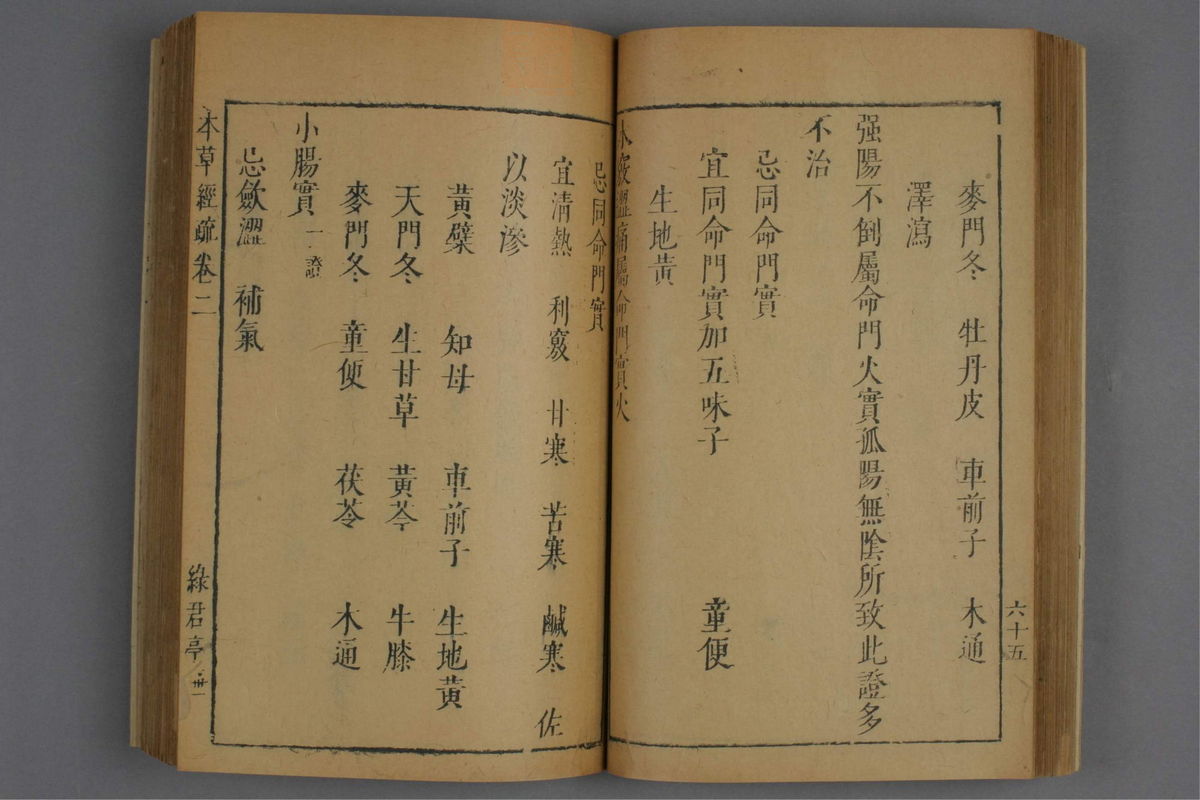 六十五
麥門冬　牡丹皮　車前子　木通
澤瀉
强陽不倒屬命門火實孤陽無陰所致此證多
不治
忌同命門實
宜同命門實加五味子　童便
生地黃
小竅澀痛屬命門實火
忌同命門實
宜清熱　利竅　甘寒　苦寒　鹹寒　佐
以淡滲
黃蘗　知母　車前子　生地黃
天門冬　生甘草　黃芩　牛膝
麥門冬　童便　茯苓　木通
小腸實一證
忌歛澀　補氣
本草經疏卷二　綠君亭